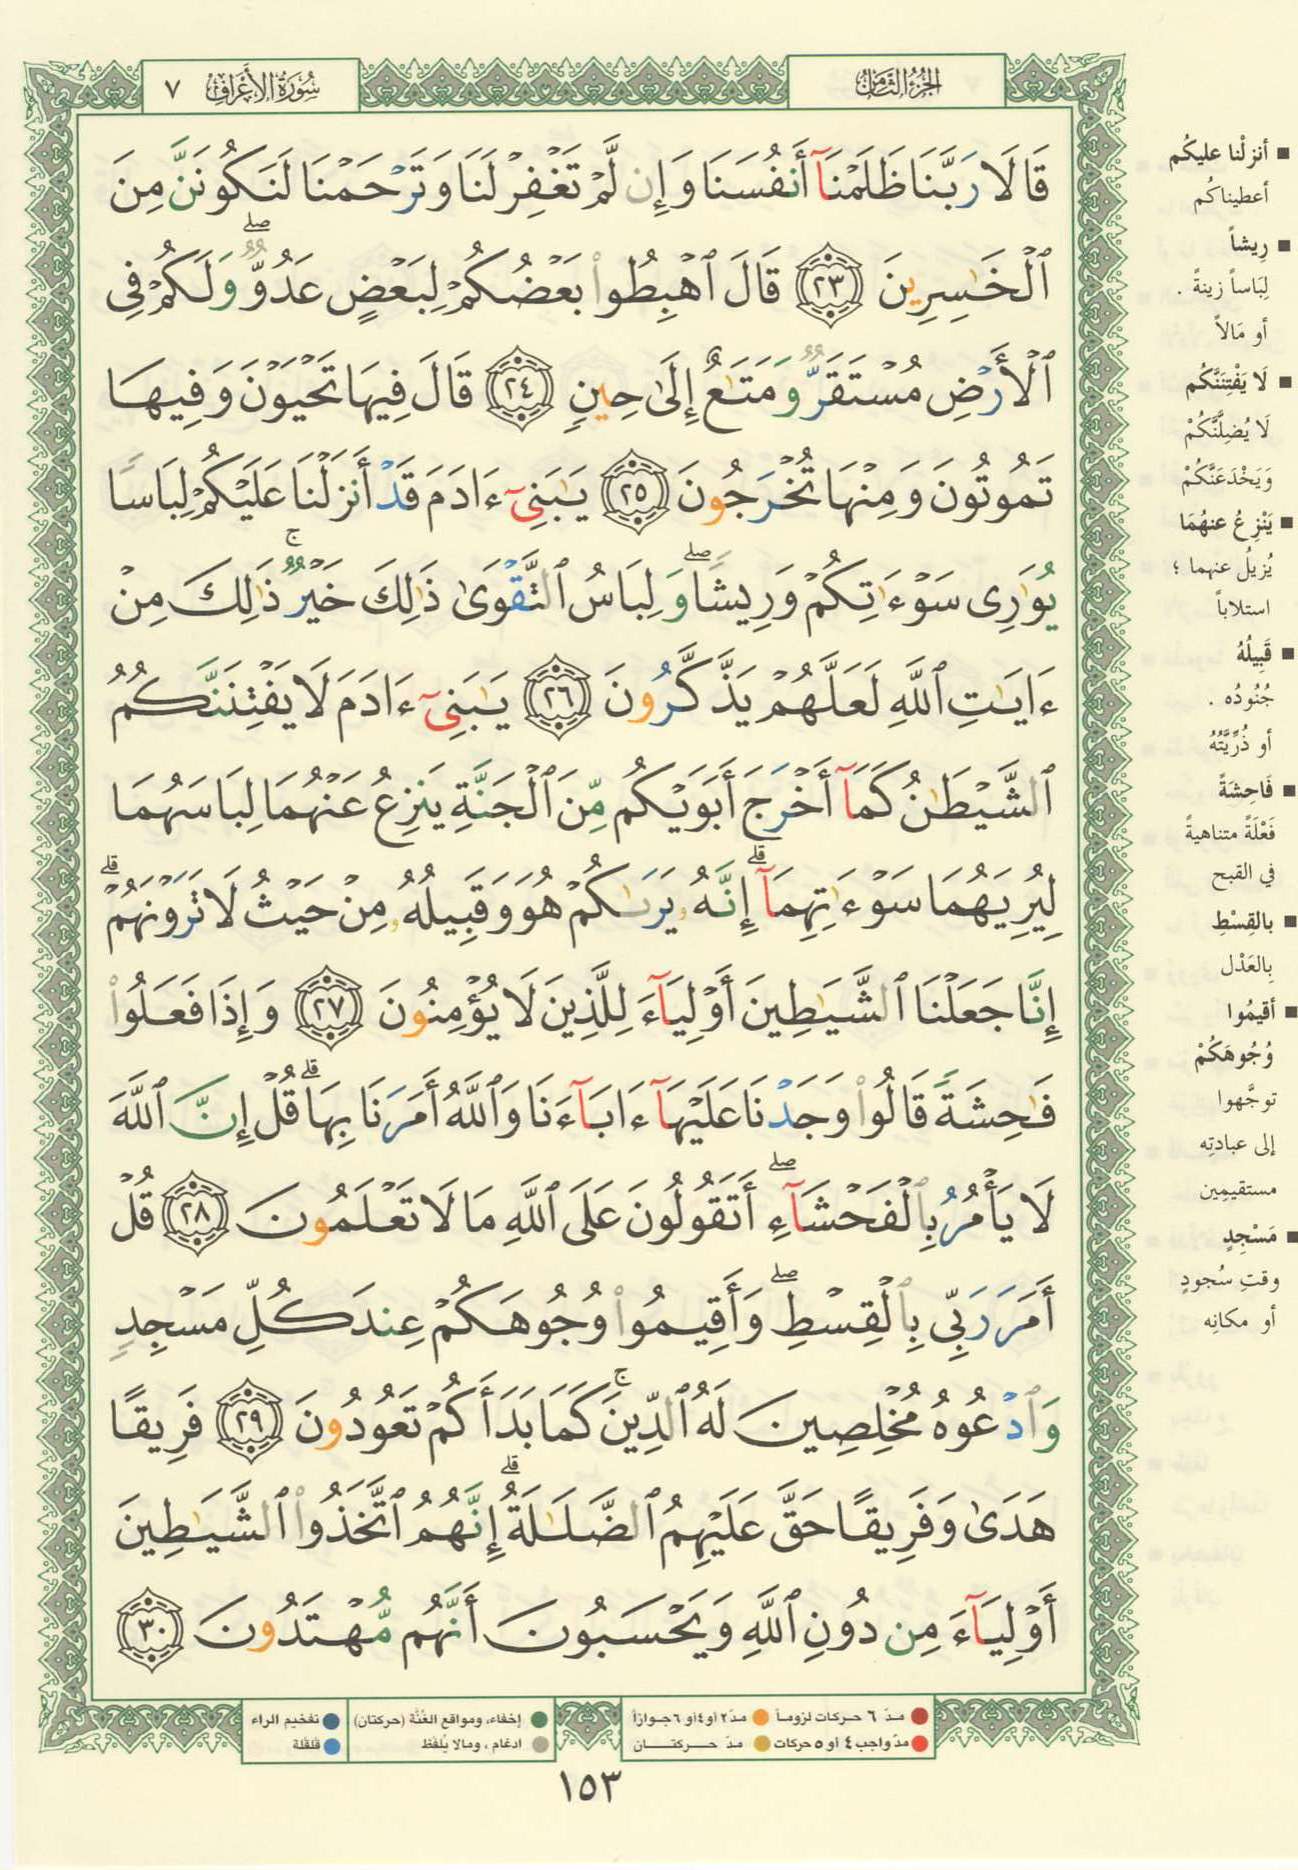 الجزء الثامن
سورة الأعراف ٧
قَالَا رَبَّنَا ظَلَمْنَآ أَنفُسَنَا وَإِن لَّمْ تَغْفِرْ لَنَا وَتَرْحَمْنَا لَنَكُونَنَّ مِنَ
ٱلْخَٰسِرِينَ ٢٣ قَالَ ٱهْبِطُوا۟ بَعْضُكُمْ لِبَعْضٍ عَدُوٌّ ۖ وَلَكُمْ فِى
ٱلْأَرْضِ مُسْتَقَرٌّ وَمَتَٰعٌ إِلَىٰ حِينٍ ٢٤ قَالَ فِيهَا تَحْيَوْنَ وَفِيهَا
تَمُوتُونَ وَمِنْهَا تُخْرَجُونَ ٢٥ يَٰبَنِىٓ ءَادَمَ قَدْ أَنزَلْنَا عَلَيْكُمْ لِبَاسًا
يُوَٰرِى سَوْءَٰتِكُمْ وَرِيشًا ۖ وَلِبَاسُ ٱلتَّقْوَىٰ ذَٰلِكَ خَيْرٌ ۚ ذَٰلِكَ مِنْ
ءَايَٰتِ ٱللَّهِ لَعَلَّهُمْ يَذَّكَّرُونَ ٢٦ يَٰبَنِىٓ ءَادَمَ لَا يَفْتِنَنَّكُمُ
ٱلشَّيْطَٰنُ كَمَآ أَخْرَجَ أَبَوَيْكُم مِّنَ ٱلْجَنَّةِ يَنزِعُ عَنْهُمَا لِبَاسَهُمَا
لِيُرِيَهُمَا سَوْءَٰتِهِمَآ ۗ إِنَّهُۥ يَرَىٰكُمْ هُوَ وَقَبِيلُهُۥ مِنْ حَيْثُ لَا تَرَوْنَهُمْ ۗ
إِنَّا جَعَلْنَا ٱلشَّيَٰطِينَ أَوْلِيَآءَ لِلَّذِينَ لَا يُؤْمِنُونَ ٢٧ وَإِذَا فَعَلُوا۟
فَٰحِشَةً قَالُوا۟ وَجَدْنَا عَلَيْهَآ ءَابَآءَنَا وَٱللَّهُ أَمَرَنَا بِهَا ۗ قُلْ إِنَّ ٱللَّهَ
لَا يَأْمُرُ بِٱلْفَحْشَآءِ ۖ أَتَقُولُونَ عَلَى ٱللَّهِ مَا لَا تَعْلَمُونَ ٢٨ قُلْ
أَمَرَ رَبِّى بِٱلْقِسْطِ ۖ وَأَقِيمُوا۟ وُجُوهَكُمْ عِندَ كُلِّ مَسْجِدٍ
وَٱدْعُوهُ مُخْلِصِينَ لَهُ ٱلدِّينَ ۚ كَمَا بَدَأَكُمْ تَعُودُونَ ٢٩ فَرِيقًا
هَدَىٰ وَفَرِيقًا حَقَّ عَلَيْهِمُ ٱلضَّلَٰلَةُ ۗ إِنَّهُمُ ٱتَّخَذُوا۟ ٱلشَّيَٰطِينَ
أَوْلِيَآءَ مِن دُونِ ٱللَّهِ وَيَحْسَبُونَ أَنَّهُم مُّهْتَدُونَ ٣٠
■ أنزلْنا عليكُم
أعطيناكُم
■ رِيشاً
لِبَاساً زينةً .
أو مَالاً
■ لَا يَفْتِنَنَّكُم
لَا يُضِلَّنَّكُمْ
وَيَخْدَعَنَّكُمْ
■ يَنْزِعُ عنهُمَا
يُزيلُ عنهما ؛
استلاباً
■ قَبِيلُهُ
جُنُودُه .
أو ذُرِّيَّتُهُ
■ فَاحِشَةً
فَعْلَةً متناهيةً
في القبح
■ بالقِسْطِ
بِالعَدْل
■ أقيمُوا
وُجُوهَكُمْ
توجَّهوا
إلى عبادتِه
مستقيمِين
■ مَسْجِدٍ
وقتِ سُجودٍ
أو مكانِه
مدّ ٦ حركات لزوماً مدّ ٢ أو ٤ أو ٦ جوازاً إخفاء، ومواقع الغُنَّة (حركتان) تفخيم الراء
مدّ واجب ٤ أو ٥ حركات مدّ حركتان ادغام ، ومالا يُلفَظ قلقلة
١٥٣